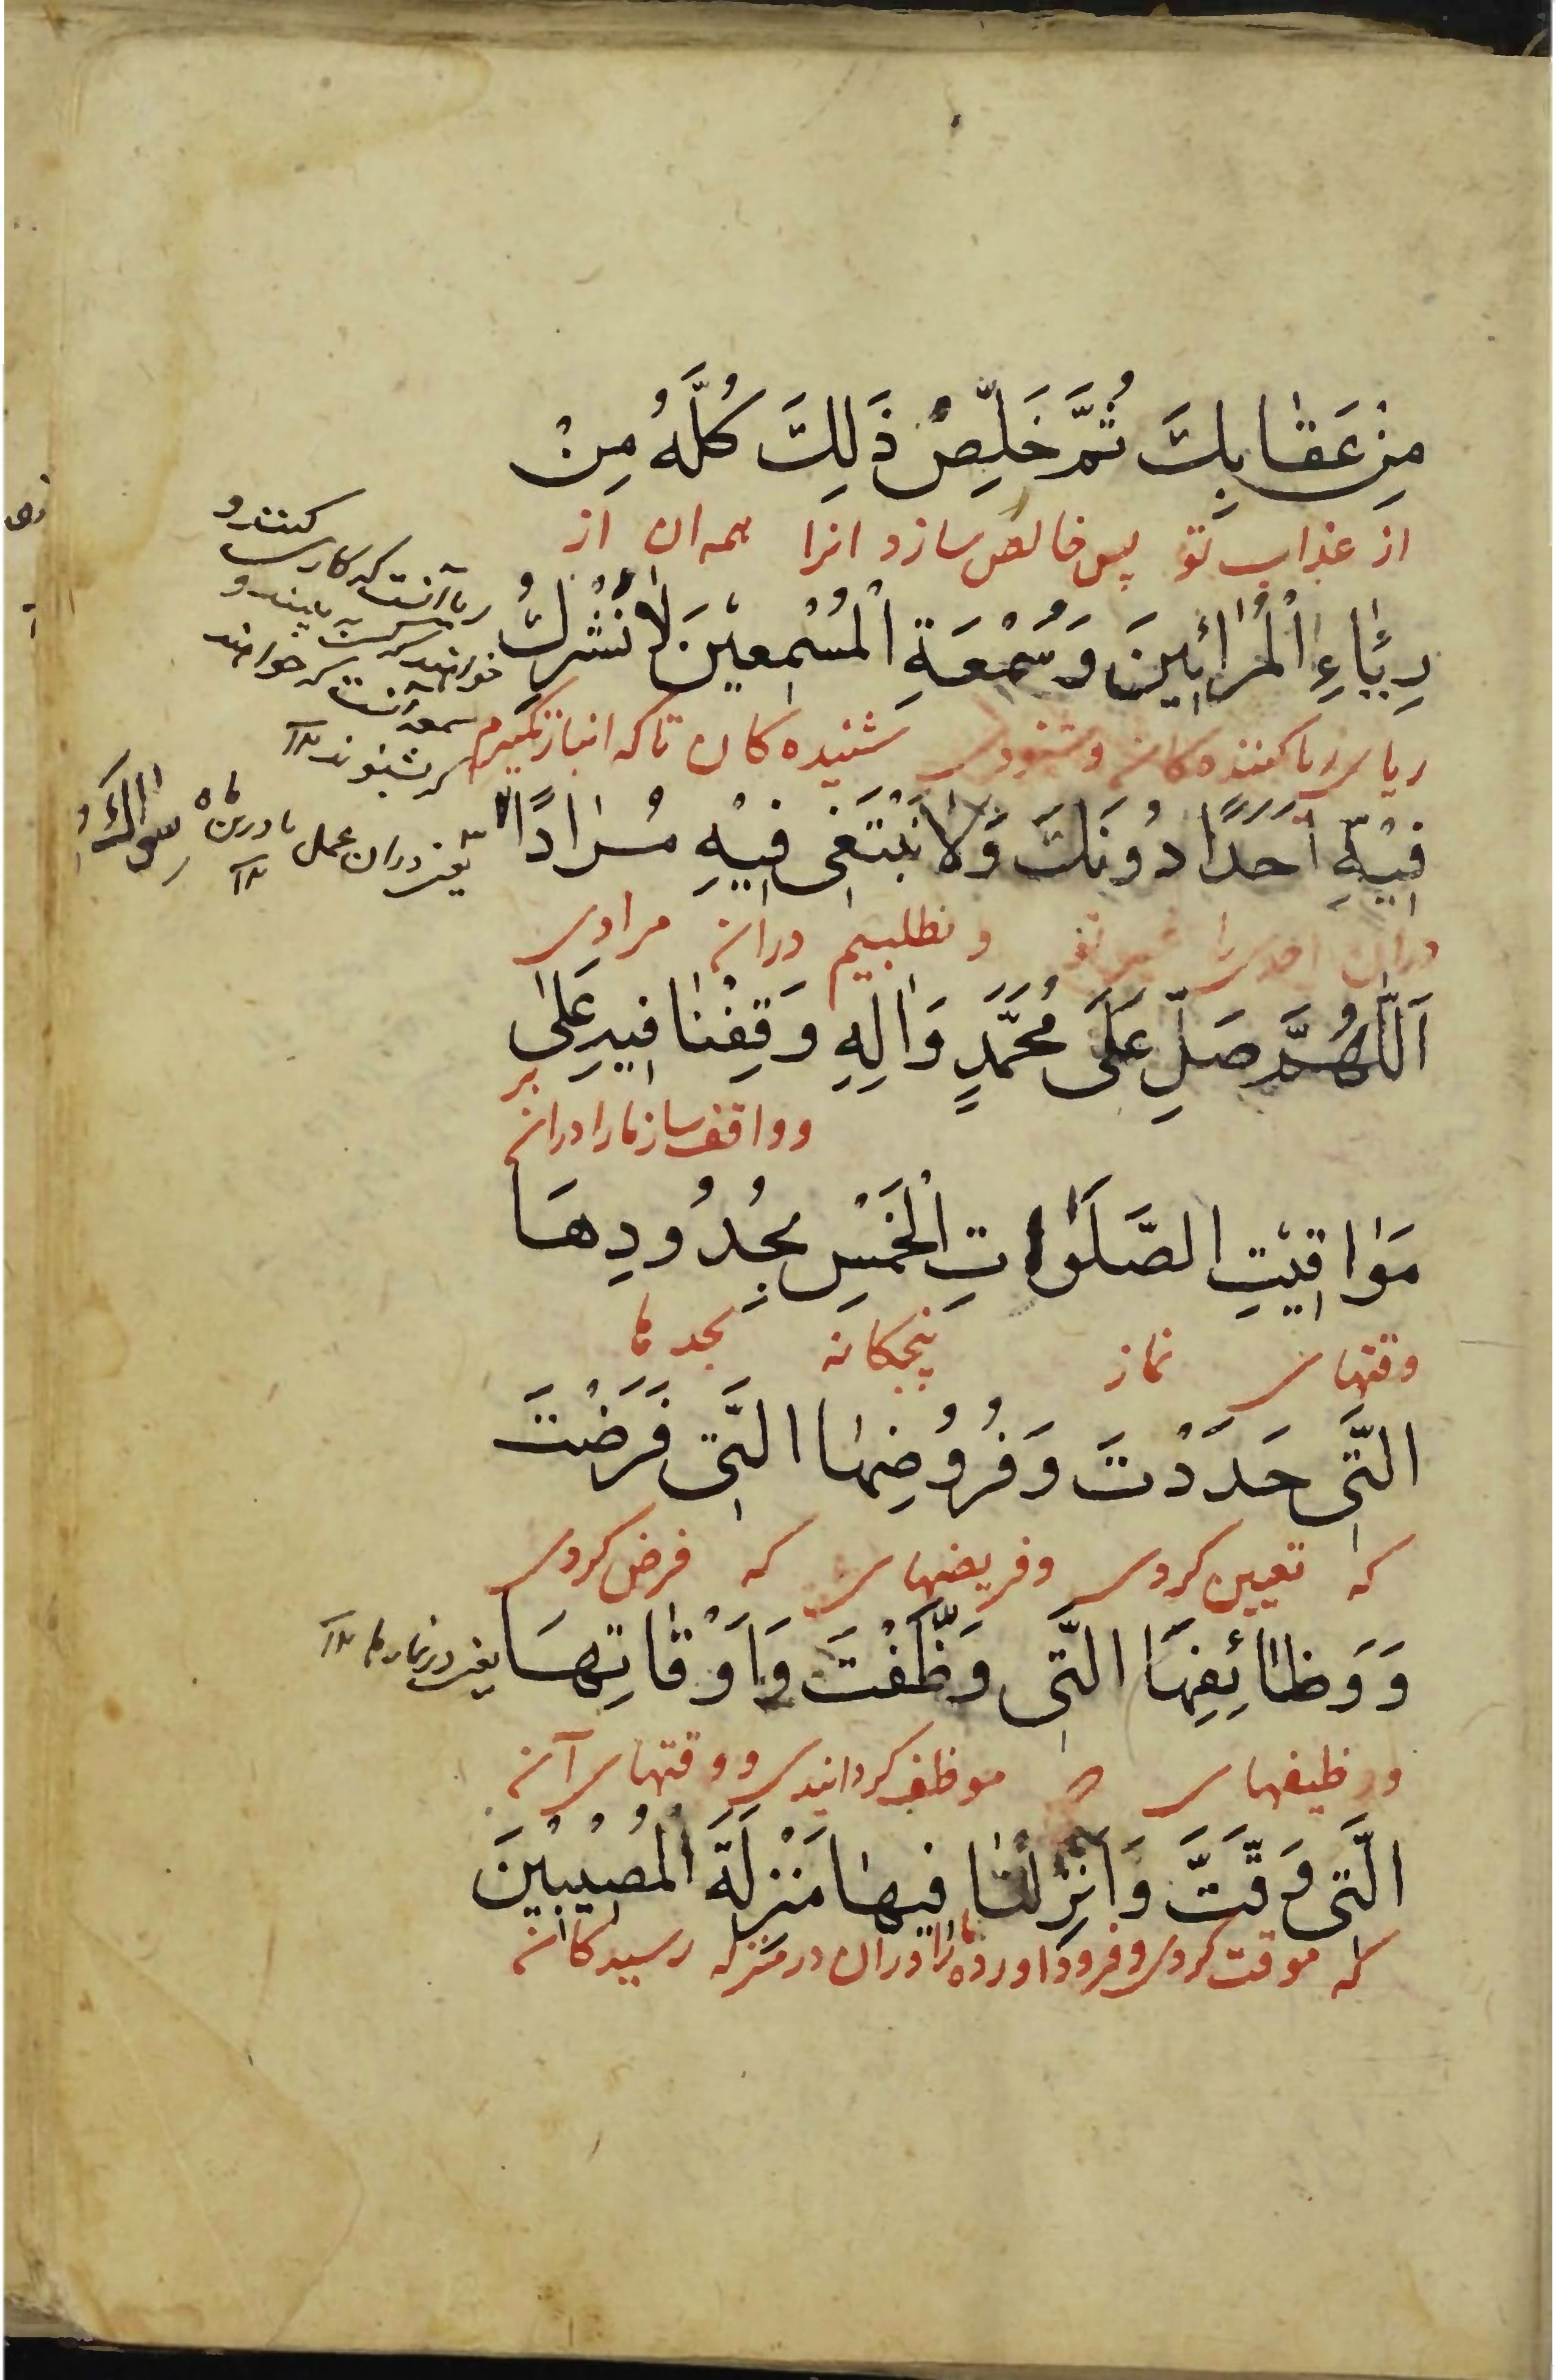 مِنْ عَقٰابِكَ ثُمَّ خَلِّصْ ذَلِكَ كُلَّهُ مِنْ
از عذاب تو پس خالص سازد انرا همه ان از
رِيٰاءِ الْمُرٰائِينَ وَسُمْعَةِ الْمُسْمِعِيْنَ لٰا نُشْرِكُ
ریای ریا کننده کان و شنودی شنیده کان تا که انباز نگیرم
فِيْهِ اَحَدًا دُونَكَ وَلٰا نَبْتَغِى فِيْهِ مُرٰادًا سِوٰاكَ
دران احدی را غیر تو و نطلبیم دران مرادی
اَللّٰهُمَّ صَلِّ عَلَى مُحَمَّدٍ وَاٰلِهِ وَقِفْنٰا فِيهِ عَلىٰ
و واقف ساز مارا دران بر
مَوٰاقِيْتِ الصَّلَوٰاتِ الْخَمْسِ بِحُدُودِهَا
وقتهای نماز پنجکانه بحدها
الَّتِى حَدَدْتَ وَفُرُوضِهٰا الَّتِى فَرَضْتَ
که تعیین کردی وفریضهای که فرض کردی
وَوَظٰائِفِهَا الَّتِى وَظَّفْتَ وَاَوْقٰاتِهَا
وظیفهای موظف کردانیدی و وقتهای آن
الَّتِى وَقَّتَّ وَاَنْزِلْنٰا فِيهٰا مَنْزِلَةَ الْمُصِيْبِيْنَ
که موقت کردی و فرود اورده مارا دران در منزله رسیدکان
ریا آنست که کاری کنند و
خواهند که کسی به بیند و
سمعه آنست که خواهند
که بشنوند
یعنی دران عمل یا درین ماه
یعنی در نمازها